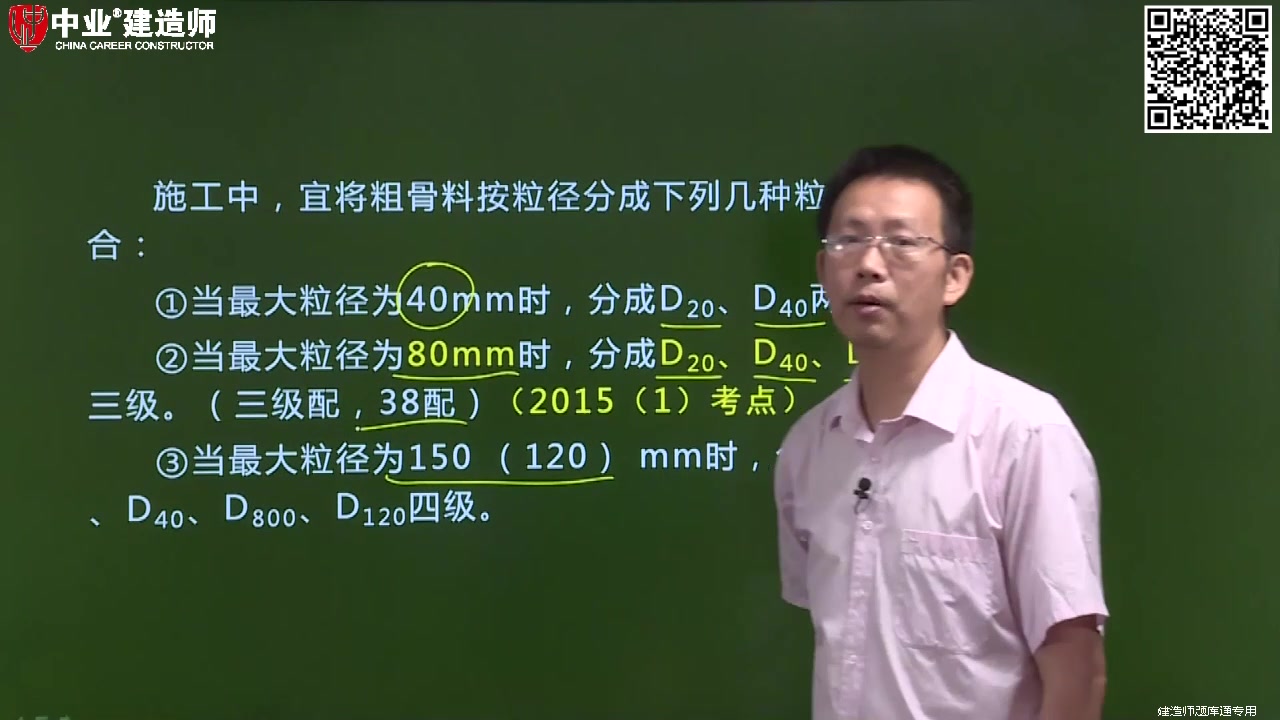 中业®建造师
CHINA CAREER CONSTRUCTOR
施工中，宜将粗骨料按粒径分成下列几种粒
合：
①当最大粒径为40mm时，分成D20、D40
②当最大粒径为80mm时，分成D20、D40、
三级。（三级配，38配）（2015（1）考点）
③当最大粒径为150 （120） mm时，
、D40、D800、D120四级。
建造师题库通专用